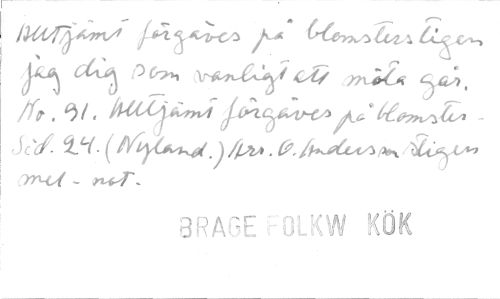 Alltjämt förgäves på blomsterstigen
jag dig som vanligt att möta går.
No. 91. Alltjämt förgäves på blomster-
Sid. 24. (Nyland.) Arr. O. Andersson stigen
mel-not.
BRAGE FOLKW KÖK